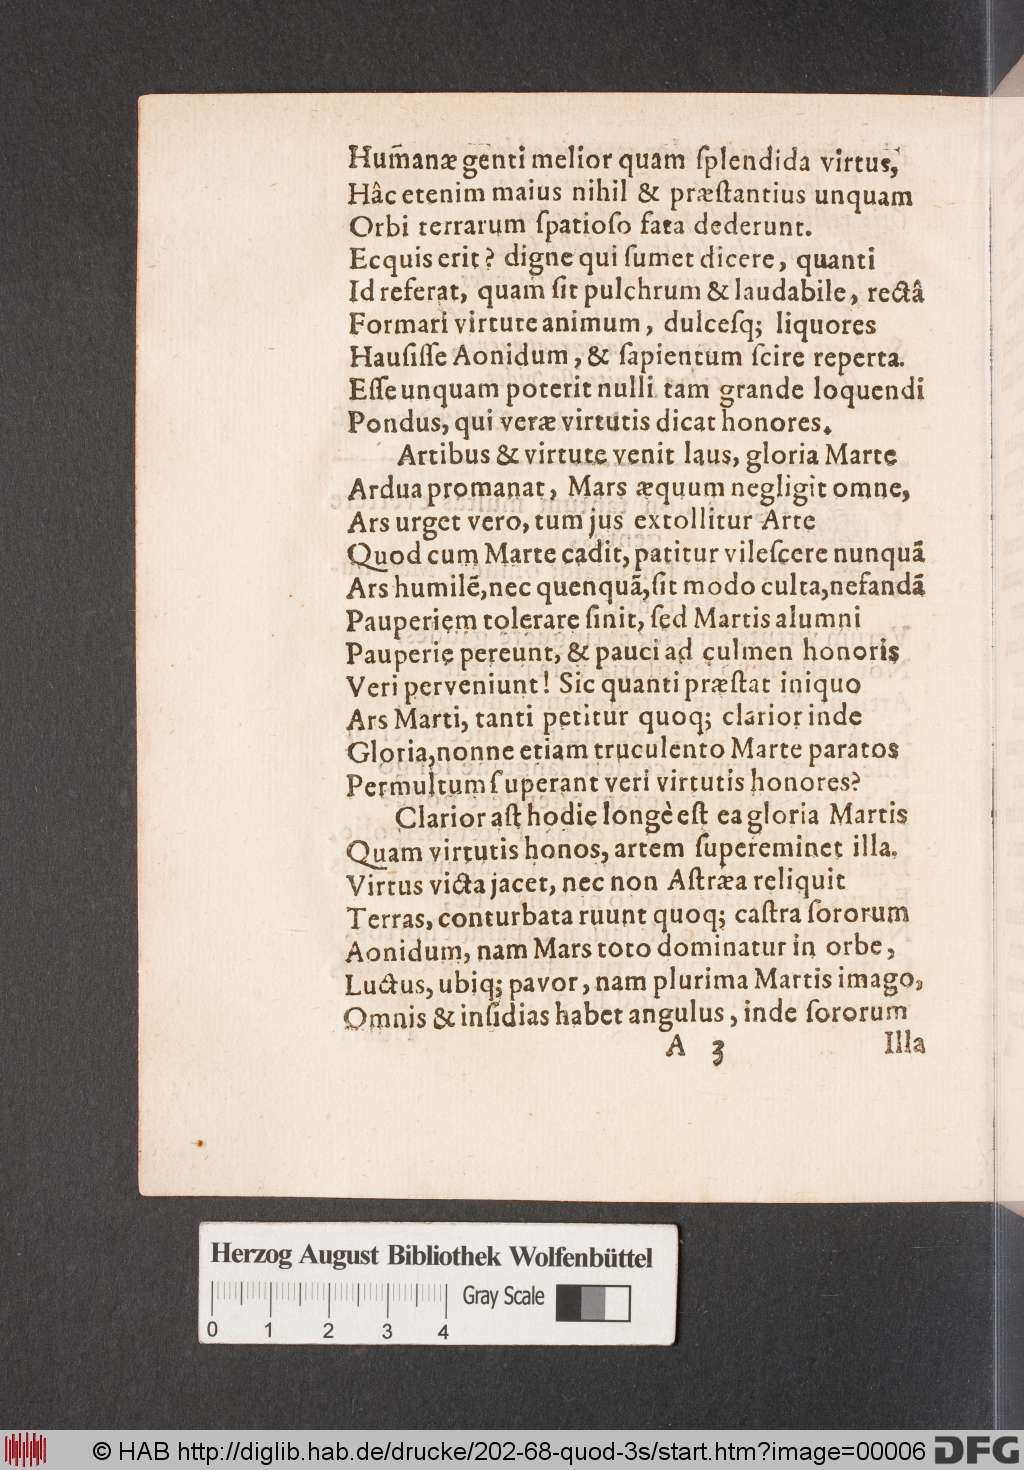 Hum̄anæ genti melior quam ſplendida virtus,
Hâc etenim maius nihil & præſtantius unquam
Orbi terrarum ſpatioſo fata dederunt.
Ecquis erit? digne qui ſumet dicere, quanti
Id referat, quam ſit pulchrum & laudabile, rectâ
Formari virtute animum, dulceſq; liquores
Hauſiſſe Aonidum, & ſapientum ſcire reperta.
Eſſe unquam poterit nulli tam grande loquendi
Pondus, qui veræ virtutis dicat honores.
Artibus & virtute venit laus, gloria Marte
Ardua promanat, Mars æquum negligit omne,
Ars urget vero, tum jus extollitur Arte
Quod cum Marte cadit, patitur vileſcere nunquã
Ars humilẽ, nec quenquã, ſit modo culta, nefandã
Pauperiem tolerare ſinit, ſed Martis alumni
Pauperie pereunt, & pauci ad culmen honoris
Veri perveniunt! Sic quanti præſtat iniquo
Ars Marti, tanti petitur quoq; clarior inde
Gloria, nonne etiam truculento Marte paratos
Permultum ſuperant veri virtutis honores?
Clarior aſt hodie longè eſt ea gloria Martis
Quam virtutis honos, artem ſupereminet illa.
Virtus victa jacet, nec non Aſtræa reliquit
Terras, conturbata ruunt quoq; caſtra ſororum
Aonidum, nam Mars toto dominatur in orbe,
Luctus, ubiq; pavor, nam plurima Martis imago,
Omnis & inſidias habet angulus, inde ſororum
A 3 Illa
Herzog August Bibliothek Wolfenbüttel
Gray Scale
0 1 2 3 4
© HAB http://diglib.hab.de/drucke/202-68-quod-3s/start.htm?image=00006 DFG